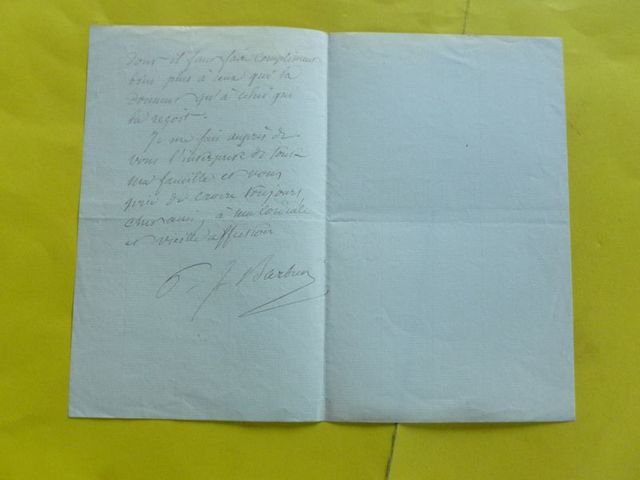 dont il faut faire compliment
bien plus à ceux qui la
donnent qu'à celui qui
la reçoit.
Je me fais auprès de
vous l'interprète de toute
ma famille et vous
prie de croire toujours,
cher ami, à ma cordiale
et vieille affection
J. Barbier